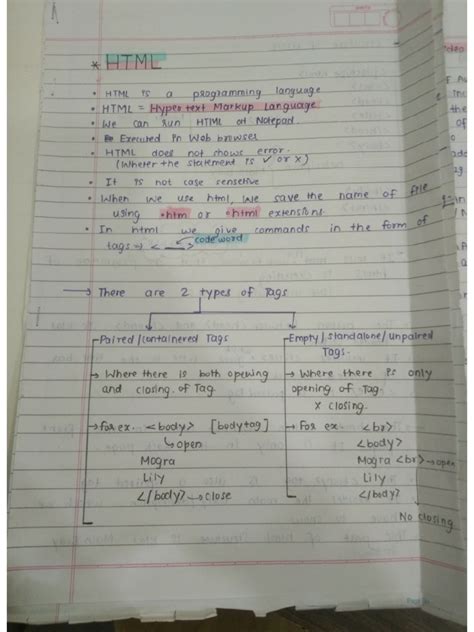 * HTML
• HTML is a programming language
• HTML = Hyper text Markup Language
• We can run HTML at Notepad.
• Executed in Web browser
• HTML does not shows error.
(Wheter the statement is ✓ or x)
• It is not case sensetive
• When we use html, we save the name of file
using •htm or •html extensions.
• In html we give commands in the form of
tags ⇒ < ___> codeword
→ There are 2 types of Tags
Paired/containered Tags
→ Where there is both opening
and closing of Tag
→ for ex. <body> [body tag]
↳ open
Mogra
Lily
</body> → close
Empty/standalone/unpaired
Tags.
→ Where there is only
opening of Tag
x closing.
→ For ex <br>
<body>
Mogra <br> → open
Lily
</body>
No closing